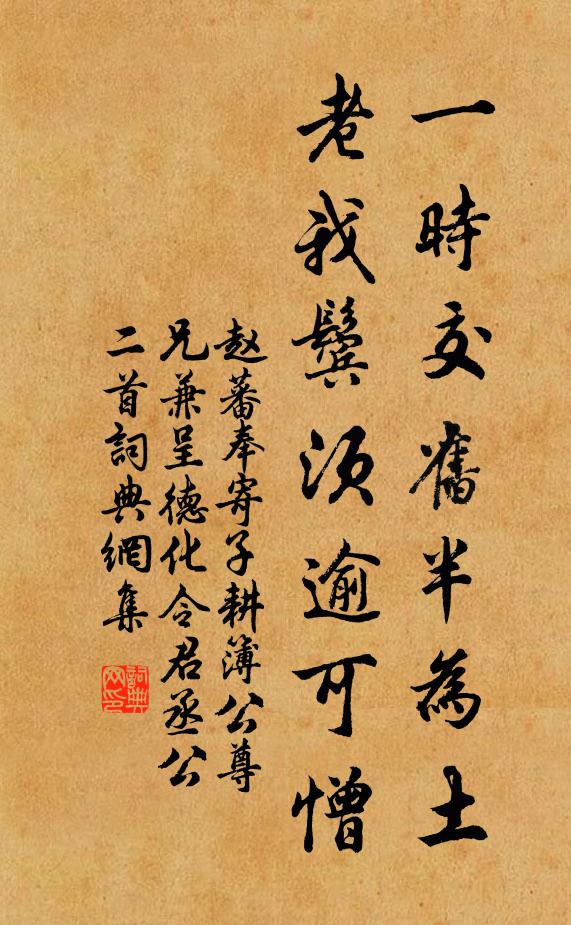 一時交舊半為土
老我鬢須逾可憎
赵蕃奉寄子耕簿公尊
兄兼呈德化令君丞公
二首詞典網集
詞典
网印